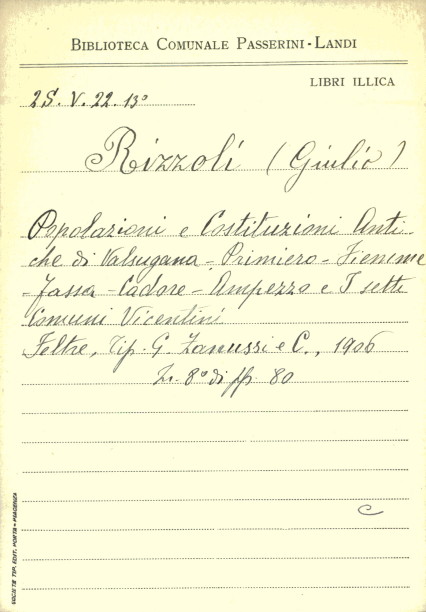 BIBLIOTECA COMUNALE PASSERINI-LANDI
LIBRI ILLICA
2S. V. 22. 13º
Rizzoli (Giulio)
Popolazioni e Costituzioni Anti-
che di Valsugana - Primiero - Fiemme
- Fassa - Cadore - Ampezzo e I sette
Comuni Vicentini
Feltre, Tip. G. Zanussi e C., 1906
In 8º di pp. 80
C
SOCIETÀ TIP. EDIT. PORTA - PIACENZA